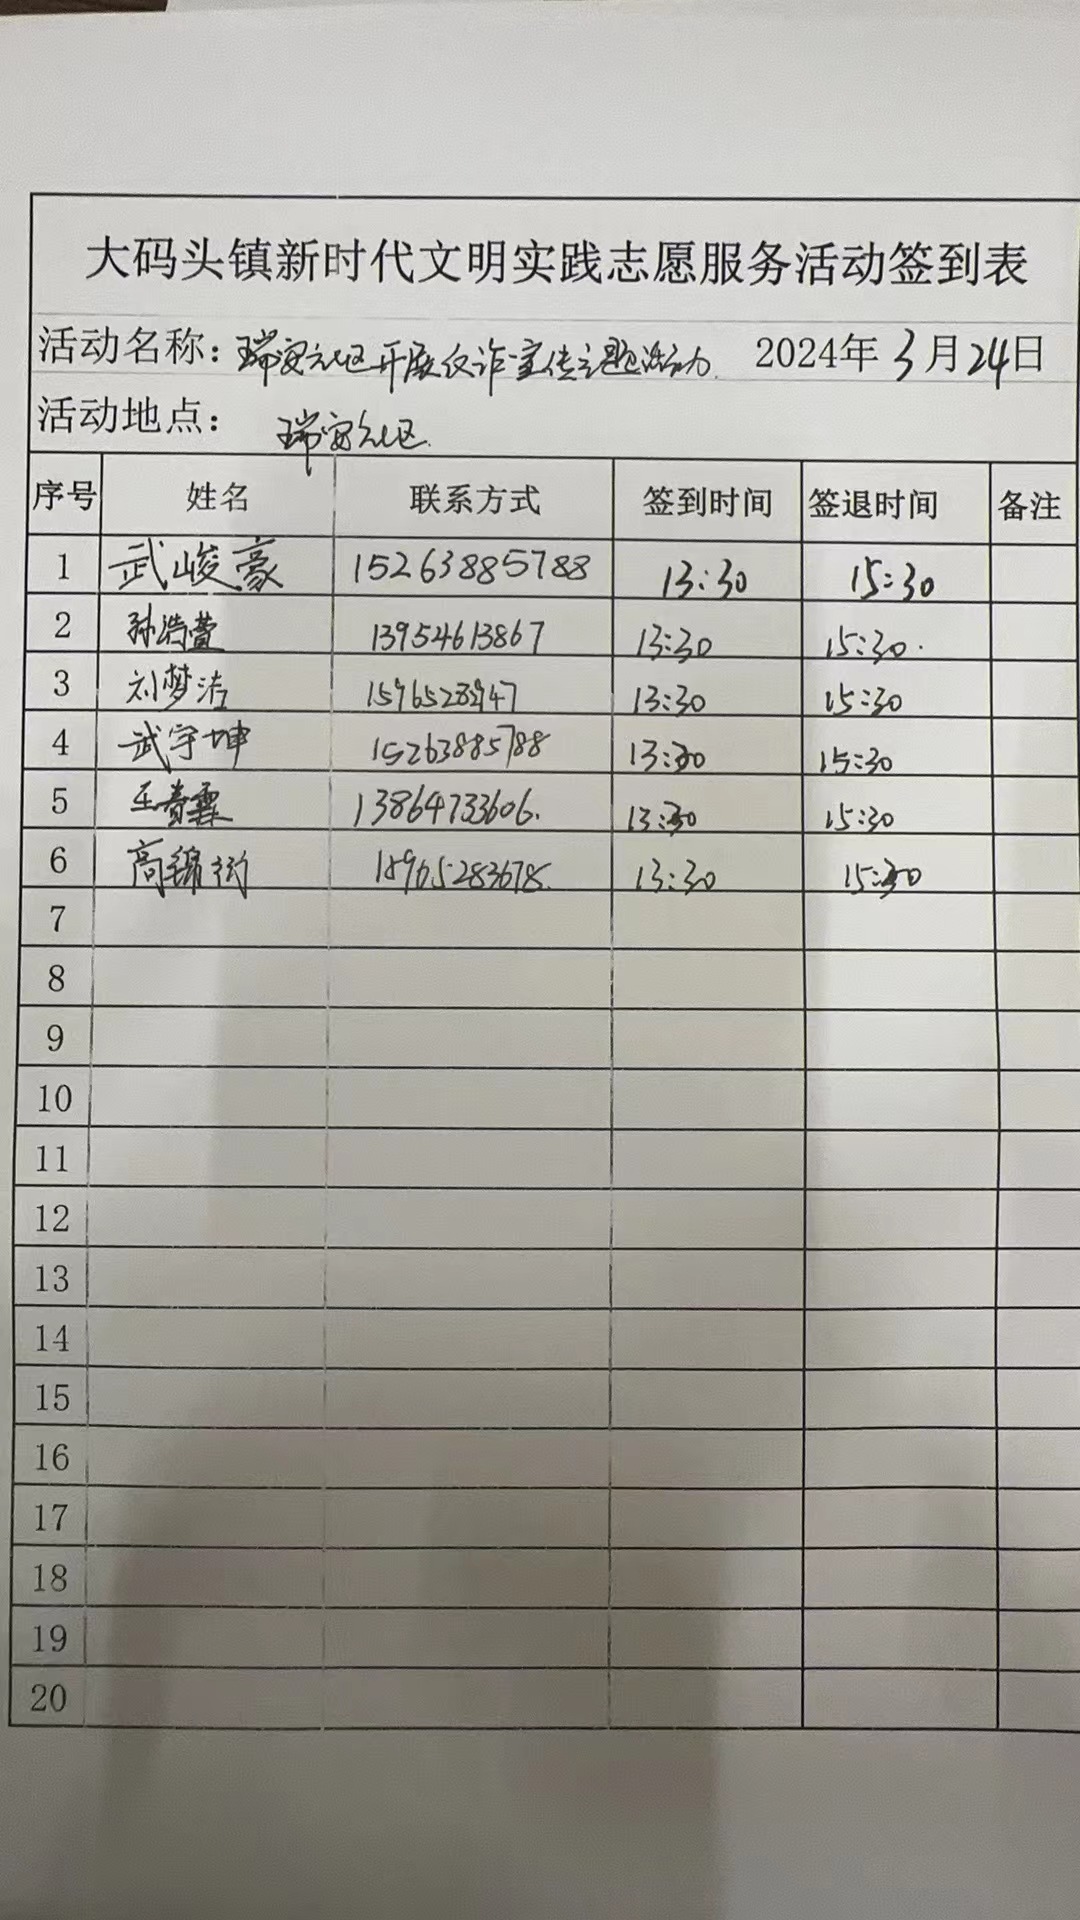 大码头镇新时代文明实践志愿服务活动签到表
活动名称：瑞安社区开展反诈宣传主题活动. 2024年3月24日
活动地点： 瑞安社区.
序号 姓名 联系方式 签到时间 签退时间 备注
1 武峻豪 15263885788 13:30 15:30
2 孙浩萱 13954613867 13:30 15:30.
3 刘梦洁 1596528947 13:30 15:30
4 武宇坤 15263885788 13:30 15:30
5 王青霖 13864733606. 13:30 15:30
6 高锦 13:30 15:30
7
8
9
10
11
12
13
14
15
16
17
18
19
20